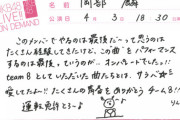 AKB48 LIVE!!
ON DEMAND
公演日 4月 3日 18:30
このメンバーでやるのは最後だ〜って思うのは
たくさん経験してきたけど、この曲をパフォーマンス
するのは最後、っていうのが、オンパレードでした!!
team 8としていただいた曲たちとは、
愛してたよー!たくさんの青春をありがとうチーム8!!
運転免許とろーよ